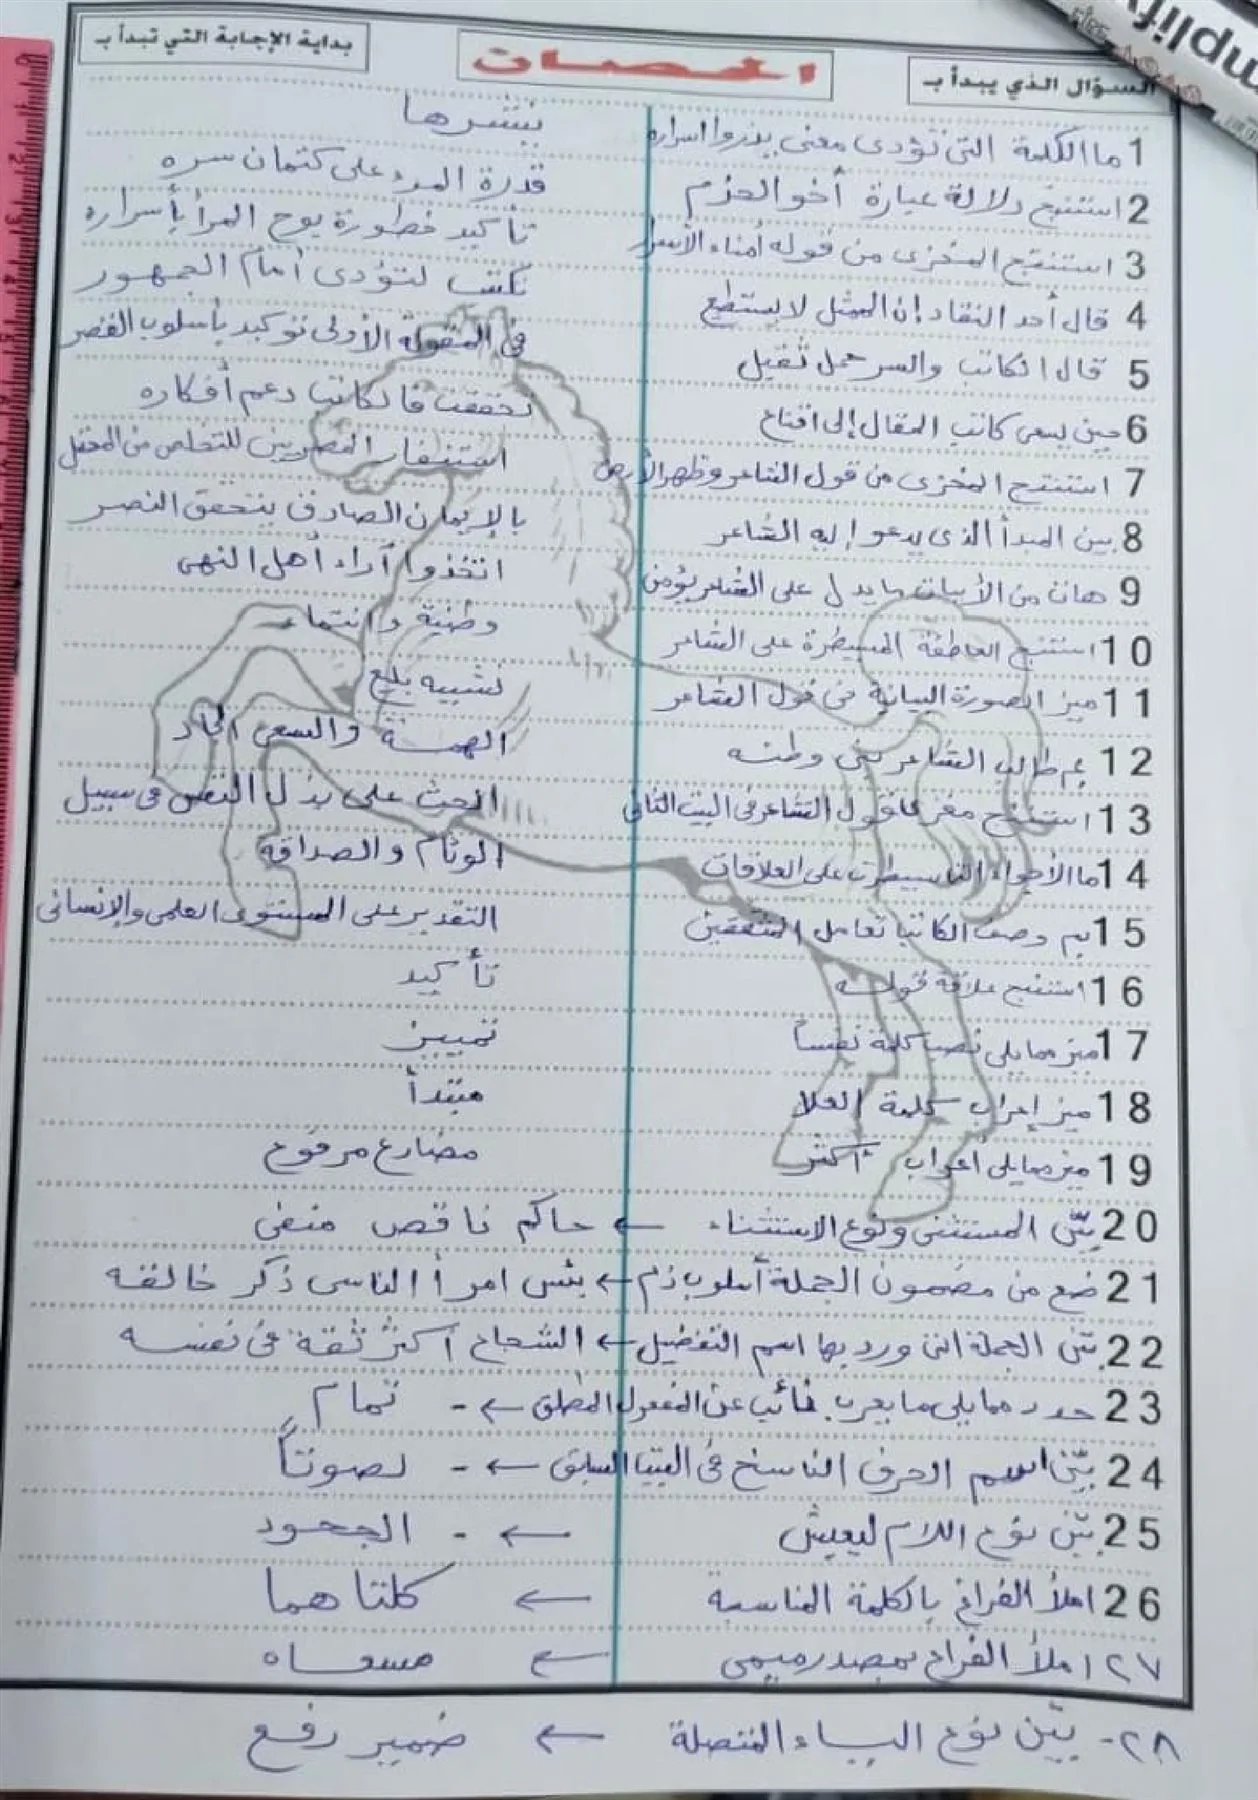 السؤال الذي يبدأ بـ
الحصان
بداية الإجابة التي تبدأ بـ
1 ما الكلمة التي تؤدى معنى يذروا اسراره ينشرها
2 استنتج دلالة عبارة أخو الحزم قدرة المرء على كتمان سره
3 استنتج المغزى من قوله أمناء الأسرار تأكيد خطورة بوح المرأ بأسراره
4 قال أحد النقاد إن الممثل لا يستطيع تكتب لتؤدى أمام الجمهور
5 قال الكاتب والسر حمل ثقيل في المقولة الأولى توكيد بأسلوب القصر
6 حين يسعى كاتب المقال إلى اقناع تحققت فالكاتب دعم أفكاره
7 استنتج المغزى من قول الشاعر وظهر الأرض استنفار المصريين للتخلص من المحتل
8 بين المبدأ الذى يدعو إليه الشاعر بالإيمان الصادق يتحقق النصر
9 هات من الأبيات ما يدل على الشاعر يؤمن اتخذوا آراء أهل النهى
10 استنتج العاطفة المسيطرة على الشاعر وطنية وانتماء
11 ميز الصورة البيانية فى قول الشاعر تشبيه بليغ
12 بم طالب الشاعر بنى وطنه الهمة والسعى الجاد
13 استنتج مغزى قول الشاعر فى البيت الثانى الحث على بذل النفس فى سبيل
14 ما الأجواء التى سيطرت على العلاقات الوئام والصداقة
15 بم وصف الكاتب تعامل المثقفين التقدير على المستوى العلمى والإنسانى
16 استنتج علاقة قوله تأكيد
17 ميز مما يلى نصب كلمة نفساً تمييز
18 ميز إعراب كلمة العلا مبتدأ
19 ميز مما يلى أعراب أكثر مضارع مرفوع
20 بيّن المستثنى ونوع الاستثناء ← حاكم ناقص منفى
21 ضع من مضمون الجملة أسلوب ذم ← بئس امرأ الناسى ذكر خالقه
22 بيّن الجملة التى ورد بها اسم التفضيل ← الشجاع أكثر ثقة فى نفسه
23 حدد مما يلى ما يعرب نائب عن المفعول المطلق ← - تمام
24 بيّن اسم الحرف الناسخ فى البيت السابق ← - لصوتاً
25 بيّن نوع اللام ليعيش ← - الجحود
26 املأ الفراغ بالكلمة المناسبة ← كلتاهما
٢٧ املأ الفراغ بمصدر ميمى ← مسعاه
٢٨- بيّن نوع الياء المتصلة ← ضمير رفع